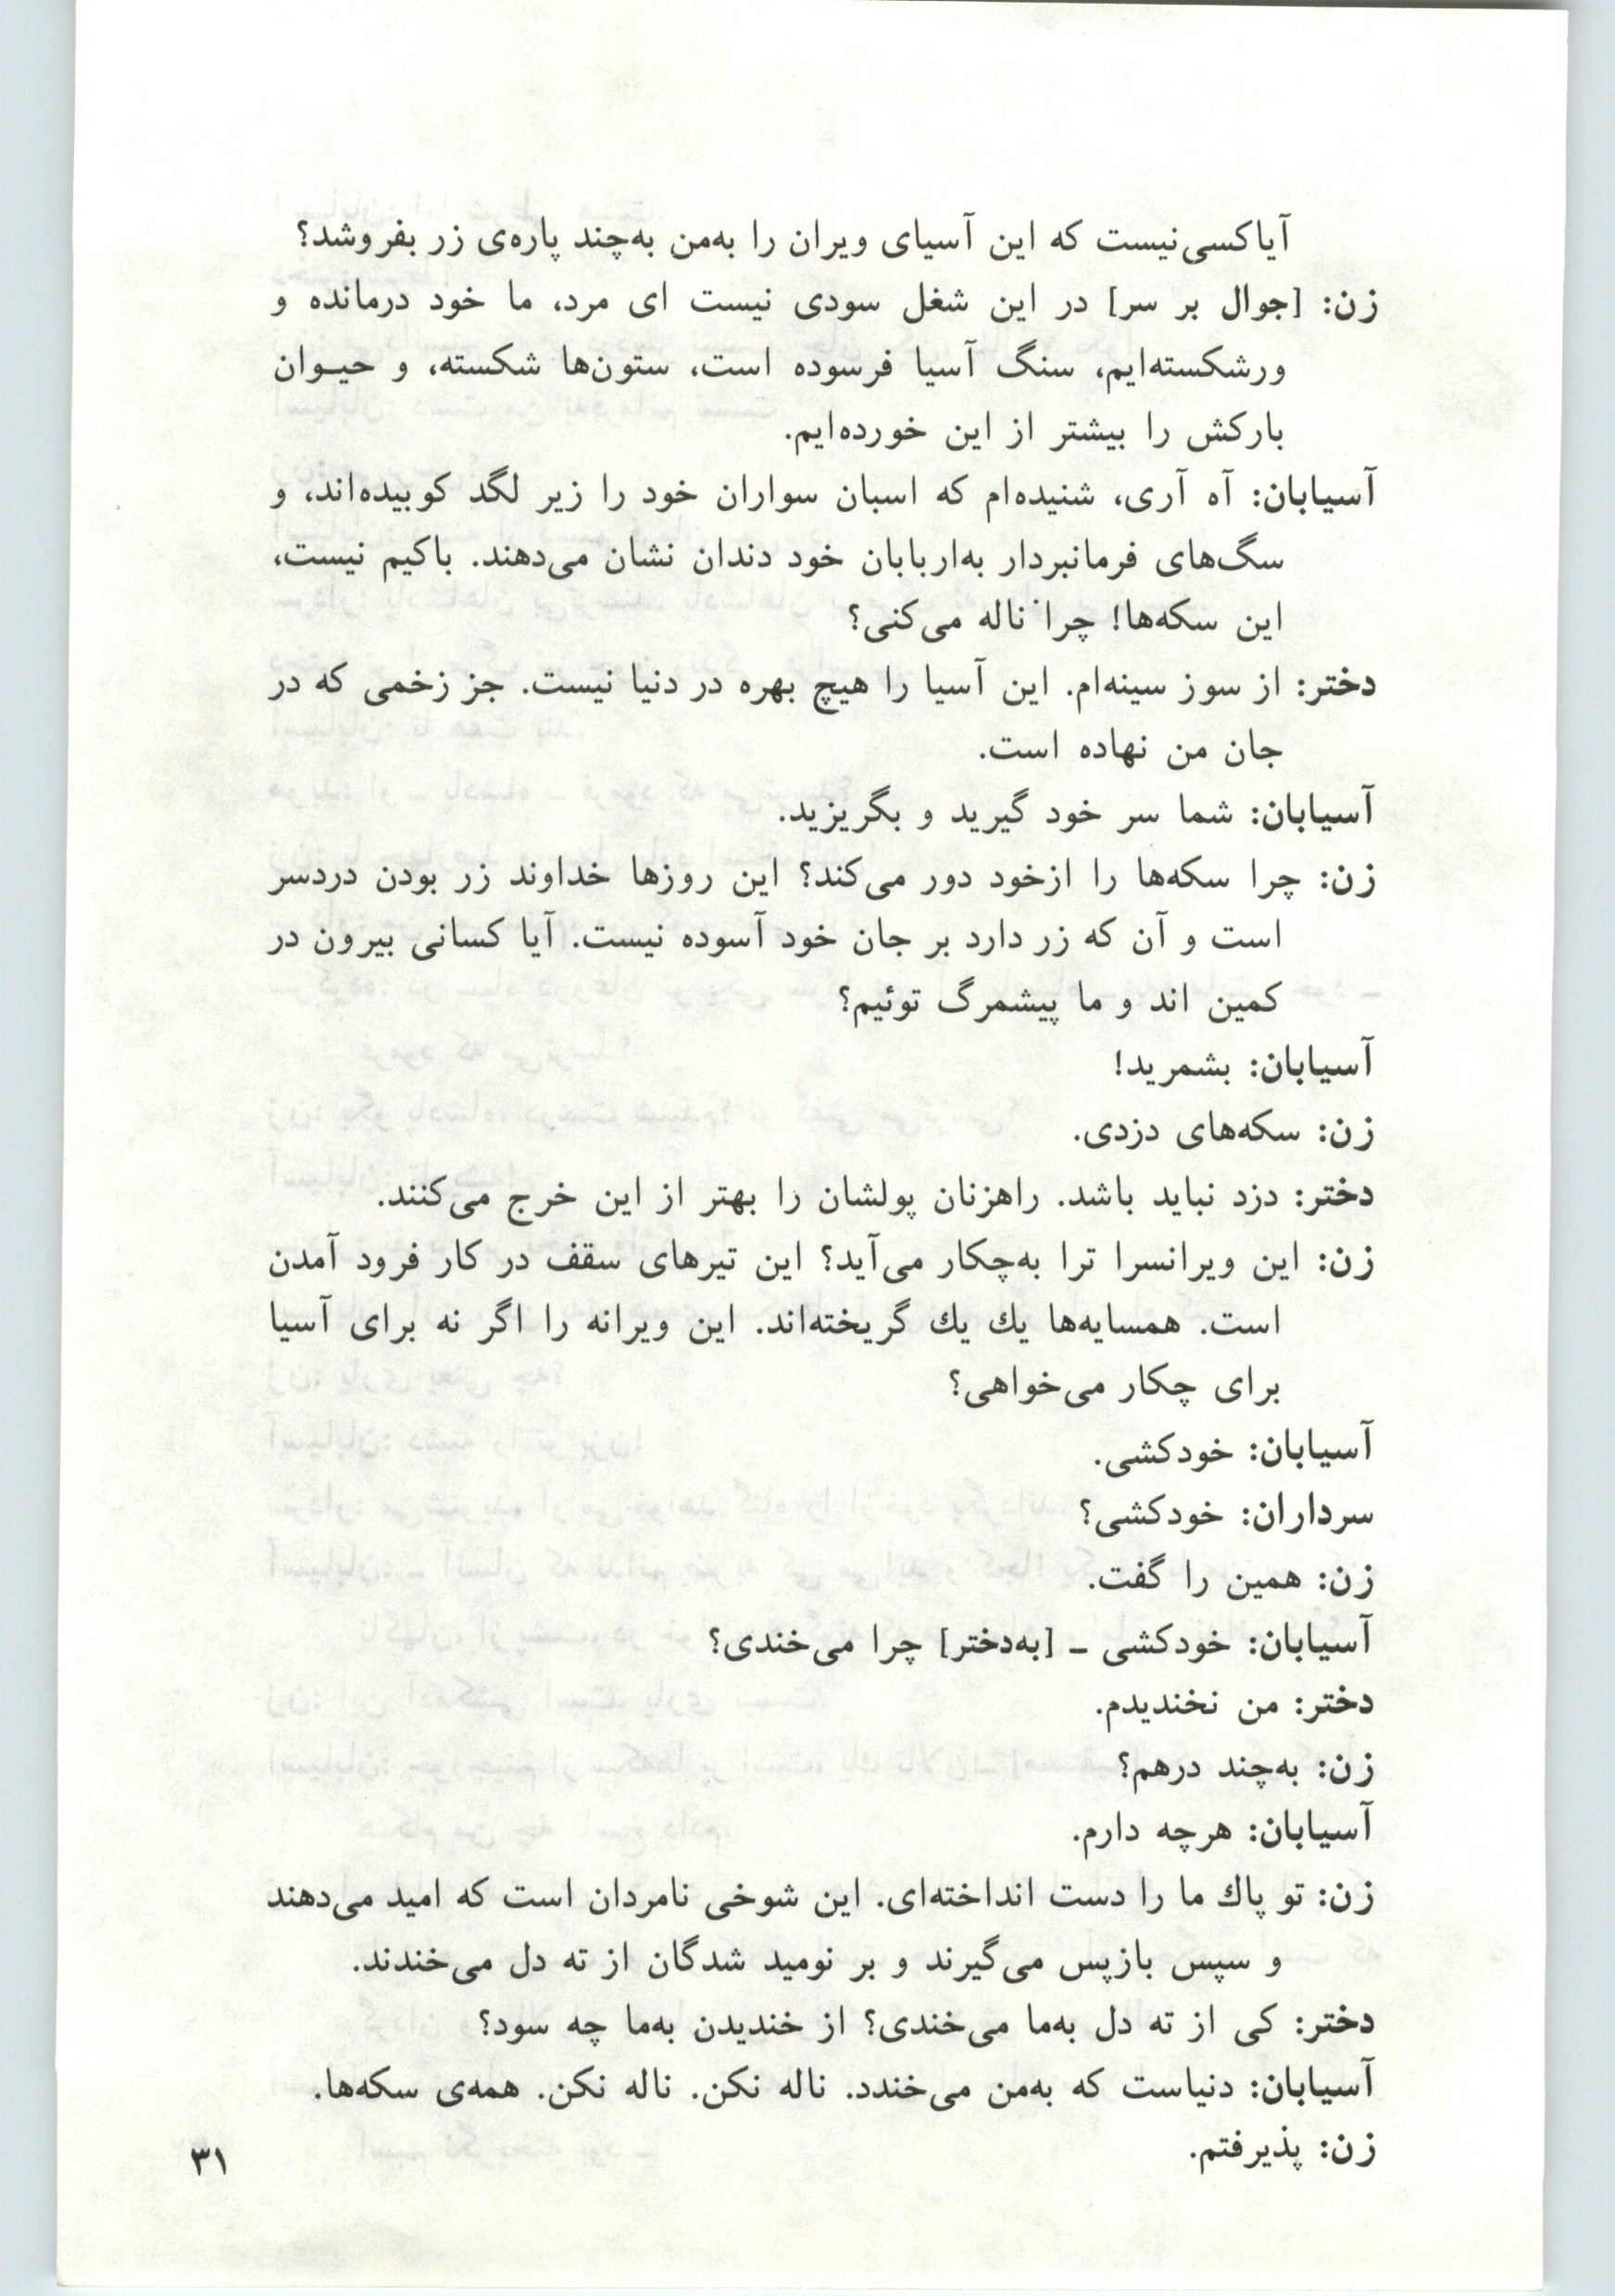 آیاکسی‌نیست که این آسیای ویران را به‌من به‌چند پاره‌ی زر بفروشد؟
زن: [جوال بر سر] در این شغل سودی نیست ای مرد، ما خود درمانده و
ورشکسته‌ایم، سنگ آسیا فرسوده است، ستون‌ها شکسته، و حیـوان
بارکش را بیشتر از این خورده‌ایم.
آسیابان: آه آری، شنیده‌ام که اسبان سواران خود را زیر لگد کوبیده‌اند، و
سگ‌های فرمانبردار به‌اربابان خود دندان نشان می‌دهند. باکیم نیست،
این سکه‌ها! چرا ناله می‌کنی؟
دختر: از سوز سینه‌ام. این آسیا را هیچ بهره در دنیا نیست. جز زخمی که در
جان من نهاده است.
آسیابان: شما سر خود گیرید و بگریزید.
زن: چرا سکه‌ها را ازخود دور می‌کند؟ این روزها خداوند زر بودن دردسر
است و آن که زر دارد بر جان خود آسوده نیست. آیا کسانی بیرون در
کمین اند و ما پیشمرگ توئیم؟
آسیابان: بشمرید!
زن: سکه‌های دزدی.
دختر: دزد نباید باشد. راهزنان پولشان را بهتر از این خرج می‌کنند.
زن: این ویرانسرا ترا به‌چکار می‌آید؟ این تیرهای سقف در کار فرود آمدن
است. همسایه‌ها یك یك گریخته‌اند. این ویرانه را اگر نه برای آسیا
برای چکار می‌خواهی؟
آسیابان: خودکشی.
سرداران: خودکشی؟
زن: همین را گفت.
آسیابان: خودکشی ـ [به‌دختر] چرا می‌خندی؟
دختر: من نخندیدم.
زن: به‌چند درهم؟
آسیابان: هرچه دارم.
زن: تو پاك ما را دست انداخته‌ای. این شوخی نامردان است که امید می‌دهند
و سپس بازپس می‌گیرند و بر نومید شدگان از ته دل می‌خندند.
دختر: کی از ته دل به‌ما می‌خندی؟ از خندیدن به‌ما چه سود؟
آسیابان: دنیاست که به‌من می‌خندد. ناله نکن. ناله نکن. همه‌ی سکه‌ها.
زن: پذیرفتم.
۳۱